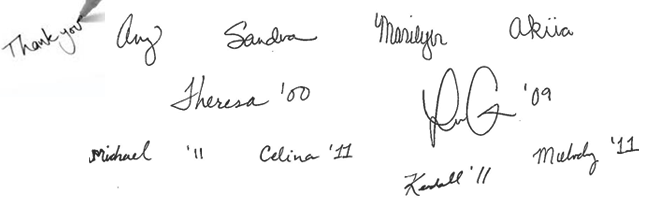 Thank you Amy Sandra Marilyn Akiia
Theresa '00 '09
Michael '11 Celina '11 Kendall '11 Melody '11